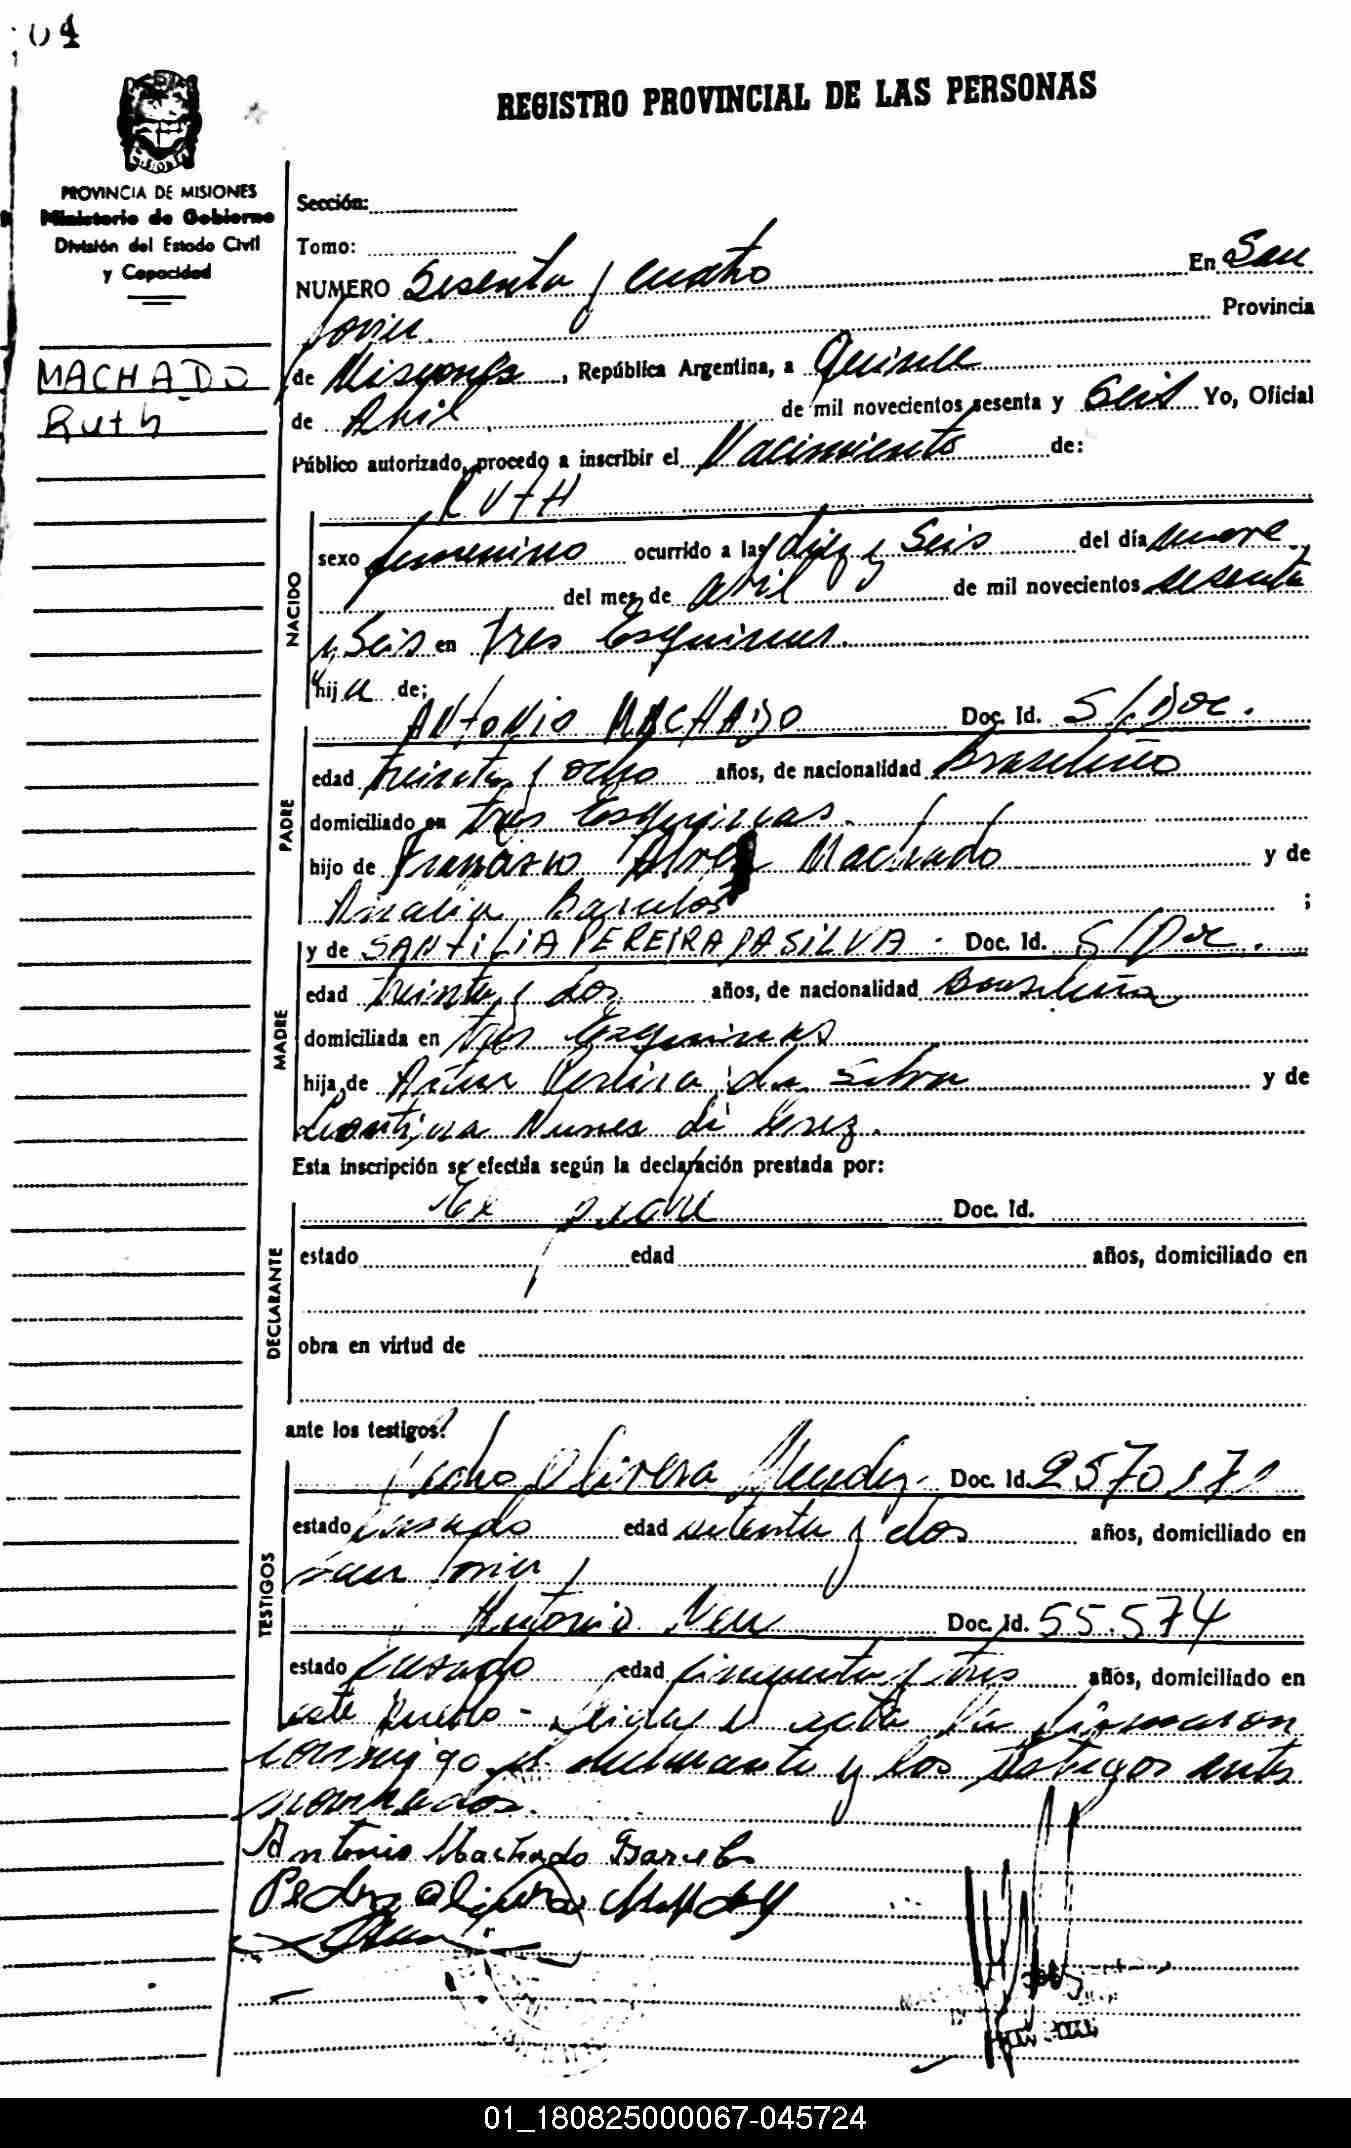 04
REGISTRO PROVINCIAL DE LAS PERSONAS
PROVINCIA DE MISIONES
Ministerio de Gobierno
División del Estado Civil
y Capacidad
MACHADO
Ruth
Sección:
Tomo:
NUMERO Sesenta y cuatro En San
Javier Provincia
de Misiones, República Argentina, a Quince
de Abril de mil novecientos sesenta y Seis Yo, Oficial
Público autorizado, procedo a inscribir el Nacimiento de:
NACIDO
RUTH
sexo femenino ocurrido a las diez y Seis del día nueve
del mes de abril de mil novecientos sesenta
y Seis en Tres Esquinas.
hija de;
PADRE
ANTONIO MACHADO Doc. Id. S/Doc.
edad treinta y ocho años, de nacionalidad Brasileño
domiciliado en tres Esquinas.
hijo de Machado y de
Amalia Barcelos ;
MADRE
y de SANTILIA PEREIRA DA SILVA. Doc. Id. S/Doc.
edad treinta y dos años, de nacionalidad Brasileña
domiciliada en tres Esquinas
hija de Pereira da Silva y de
Nunes
Esta inscripción se efectúa según la declaración prestada por:
DECLARANTE
El padre Doc. Id.
estado edad años, domiciliado en
obra en virtud de
ante los testigos:
TESTIGOS
Pedro Olivera Mendez. Doc. Id.
estado casado edad setenta y dos años, domiciliado en
San Javier
Antonio Doc. Id. 55.574
estado casado edad cincuenta y tres años, domiciliado en
este pueblo - Leida el acta la firmaron
conmigo el declarante y los testigos antes
nombrados.
Antonio Machado Barcelo
Pedro Olivera
01_180825000067-045724